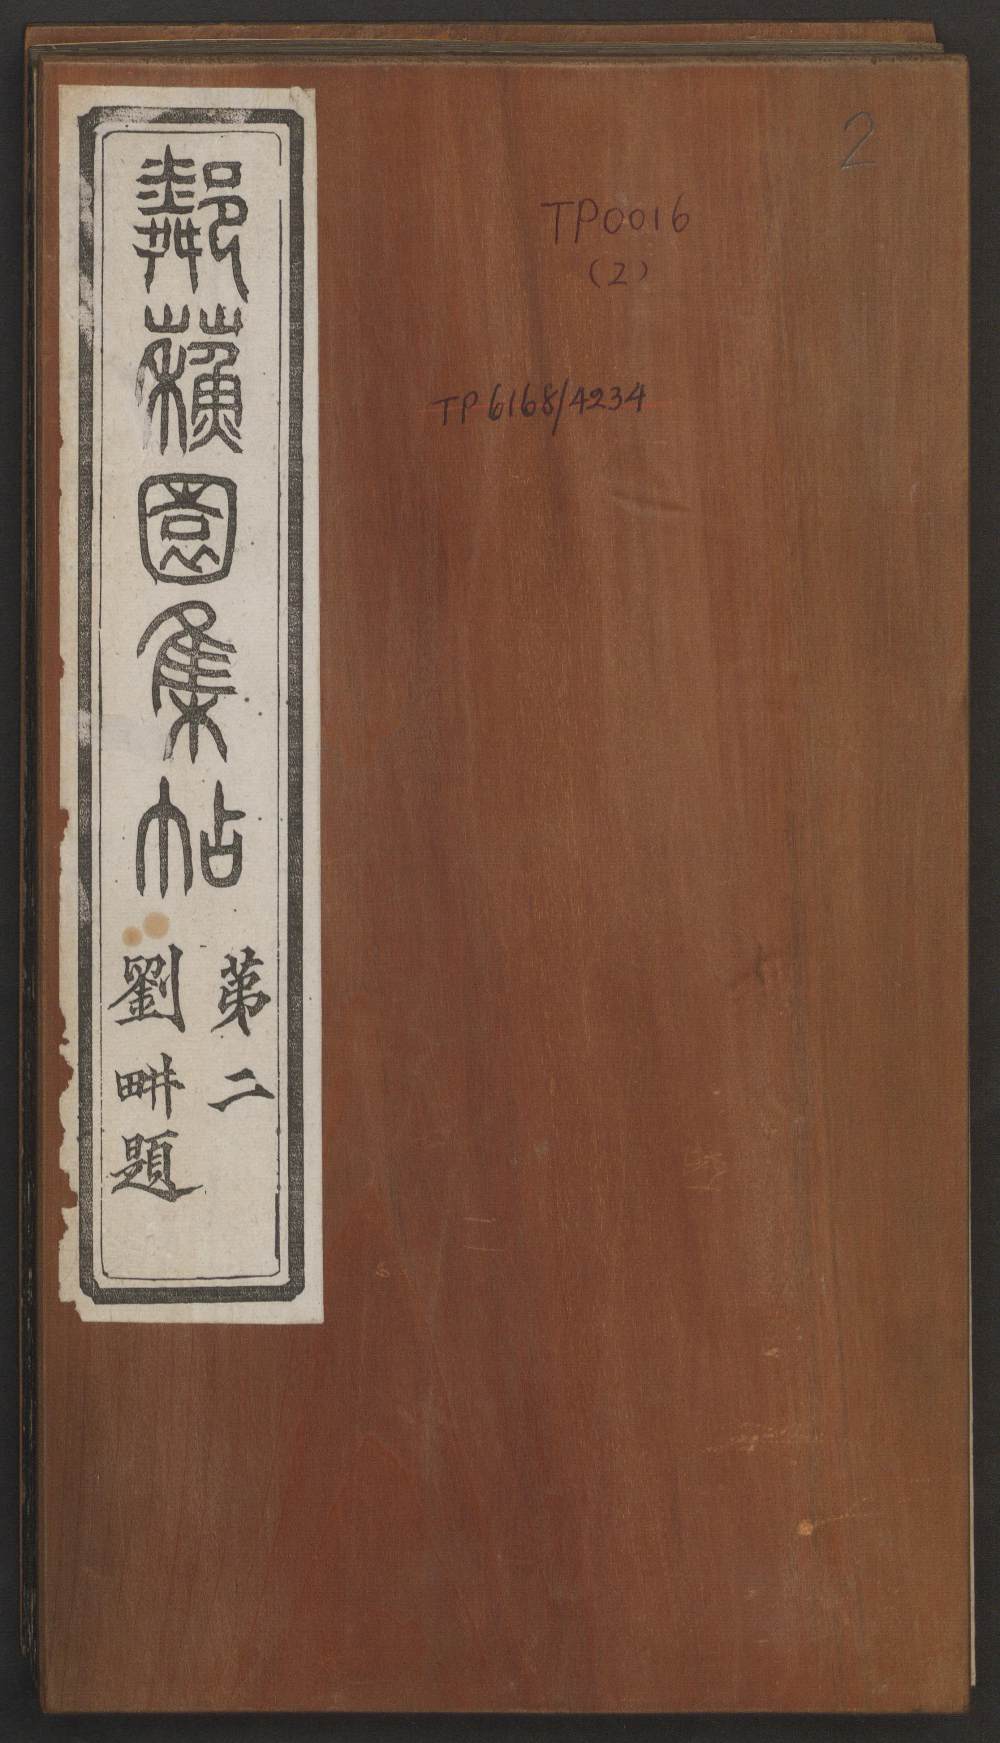 2
TP0016
(2)
TP 6168/4234
鄰蘇園集帖
第二
劉畊題